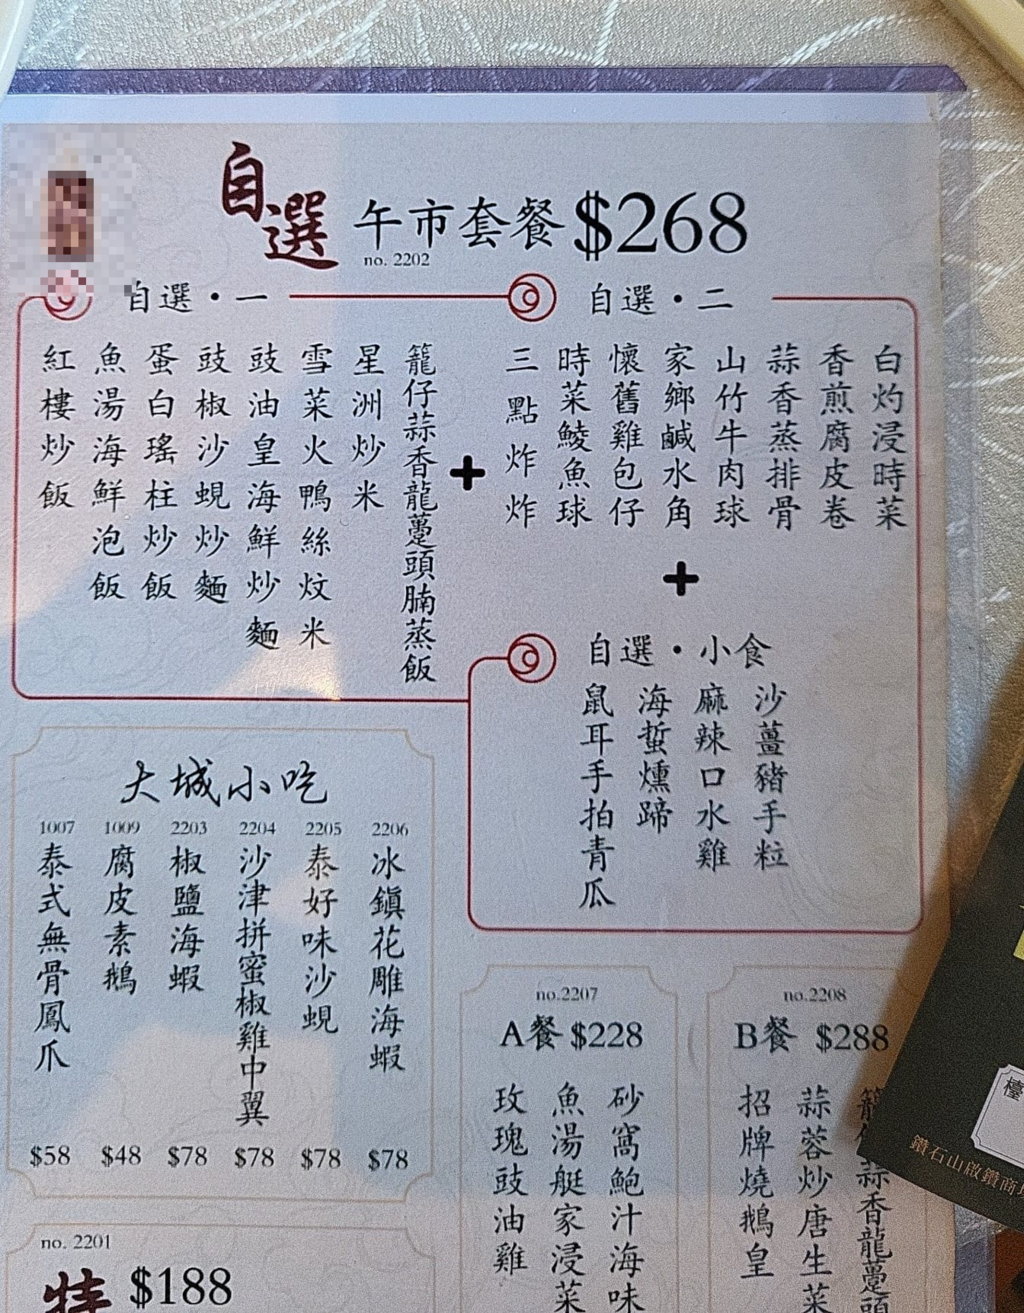 自選 午市套餐 $268
no. 2202
自選・一
籠仔蒜香龍躉頭腩蒸飯
星洲炒米
雪菜火鴨絲炆米
豉油皇海鮮炒麵
豉椒沙蜆炒麵
蛋白瑤柱炒飯
魚湯海鮮泡飯
紅樓炒飯
+
自選・二
白灼浸時菜
香煎腐皮卷
蒜香蒸排骨
山竹牛肉球
家鄉鹹水角
懷舊雞包仔
時菜鯪魚球
三點炸炸
+
自選・小食
沙薑豬手粒
麻辣口水雞
海蜇燻蹄
鼠耳手拍青瓜
大城小吃
2206
冰鎮花雕海蝦
$78
2205
泰好味沙蜆
$78
2204
沙津拼蜜椒雞中翼
$78
2203
椒鹽海蝦
$78
1009
腐皮素鵝
$48
1007
泰式無骨鳳爪
$58
no.2207
A餐 $228
砂窩鮑汁海味
魚湯艇家浸菜
玫瑰豉油雞
no.2208
B餐 $288
蒜香龍躉頭
蒜蓉炒唐生菜
招牌燒鵝皇
no. 2201
特 $188
檯
鑽石山啟鑽商場